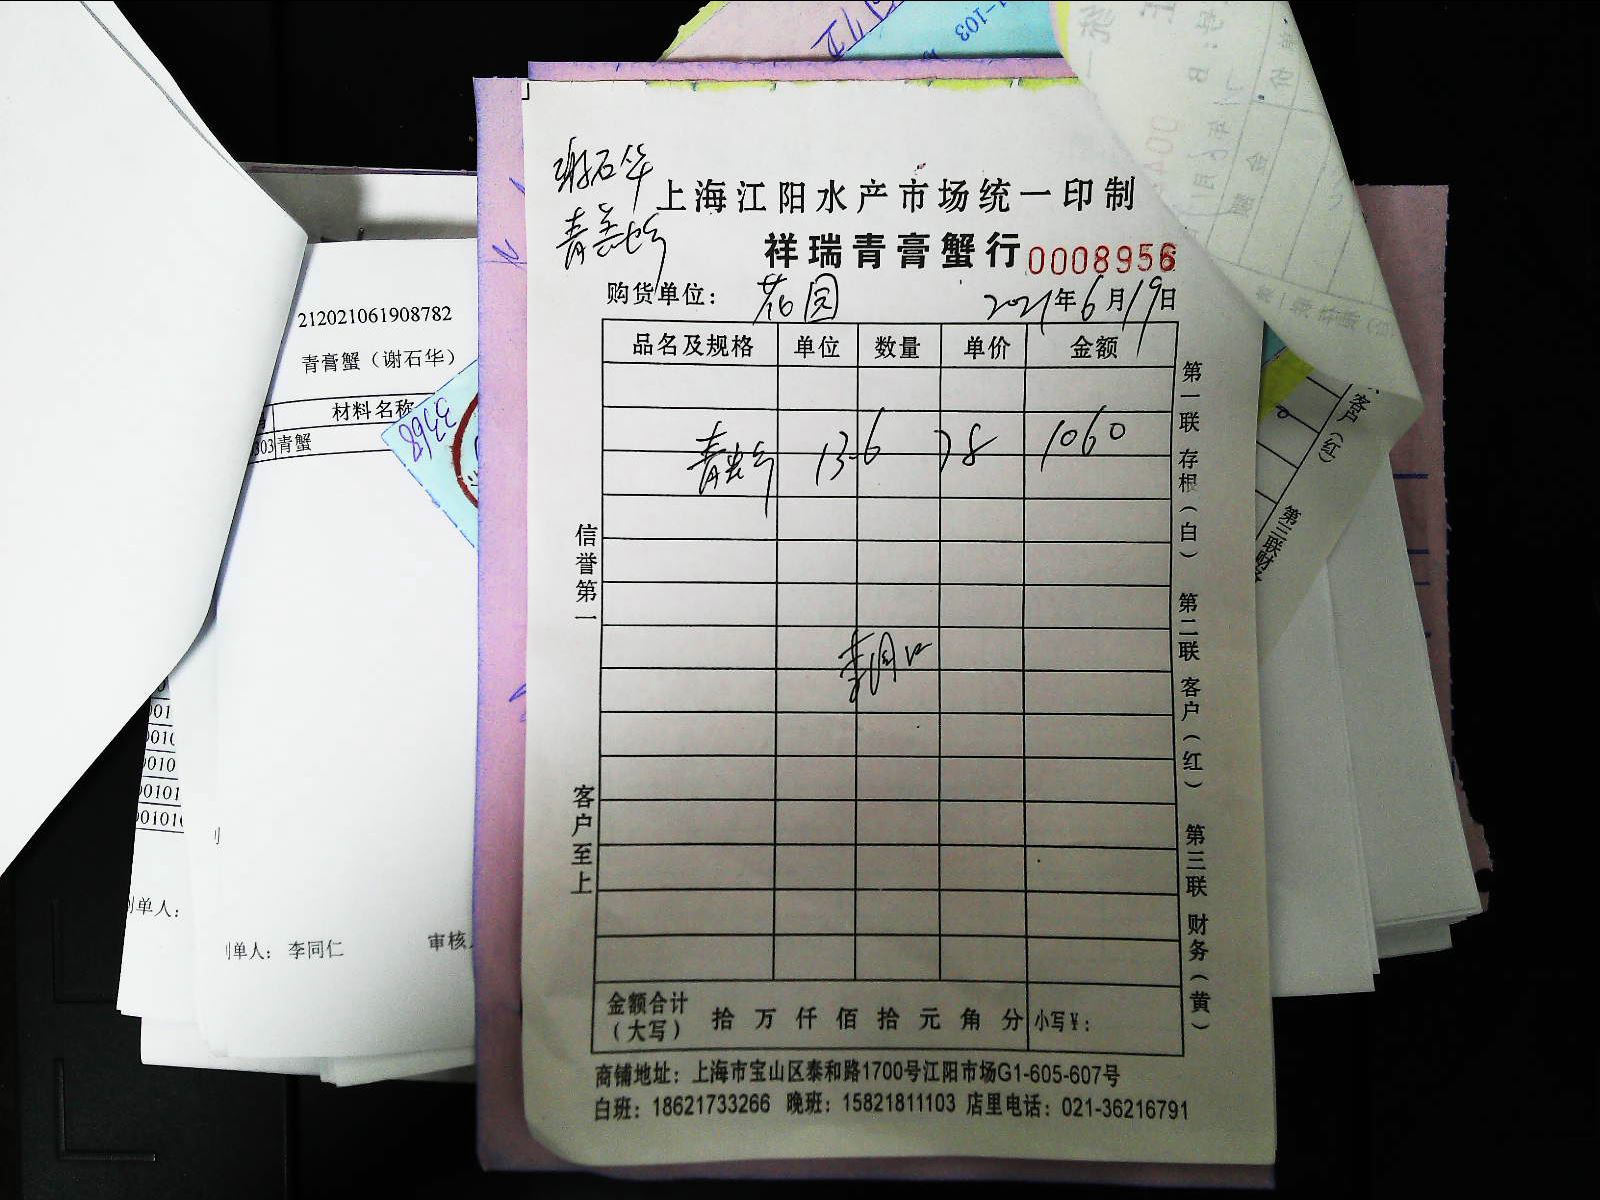 谢石华
青膏蟹
上海江阳水产市场统一印制
祥瑞青膏蟹行 0008956
购货单位： 花园 2021年6月19日
品名及规格 单位 数量 单价 金额
13.6 78 1060
信誉第一
客户至上
第一联存根（白） 第二联客户（红） 第三联财务（黄）
金额合计（大写） 拾万仟佰拾元角分 小写¥：
商铺地址：上海市宝山区泰和路1700号江阳市场G1-605-607号
白班：18621733266 晚班：15821811103 店里电话：021-36216791
212021061908782
青膏蟹（谢石华）
材料名称
303 青蟹
3368
制单人：
制单人： 李同仁
审核
001
0010
0010
00101
001010
1-103
客户（红）
第三联财务